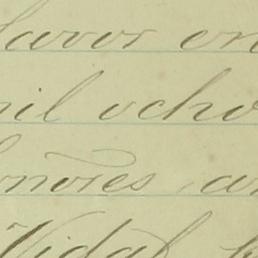 favor en
mil ocho
nores, a
Vidal